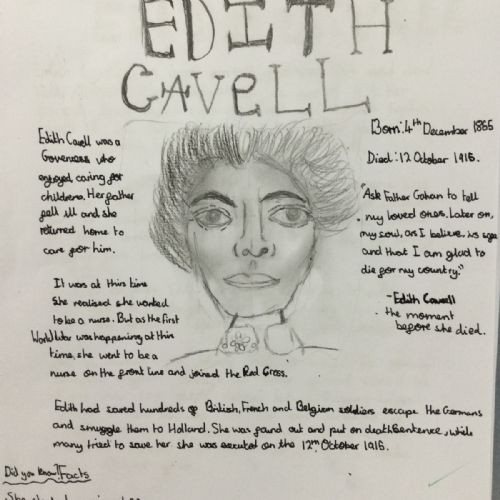 EDITH
CAVELL
Edith Cavell was a
Governess who
enjoyed caring for
childrens. Her father
fell ill and she
returned home to
care for him.
It was at this time
she realised she wanted
to be a nurse. But as the first
World War was happening at this
time, she went to be a
nurse on the front line and joined the Red Cross.
Born: 4th December 1865
Died: 12 October 1915.
"Ask Father Gahan to tell
my loved ones, later on,
my soul, as I believe, is safe
and that I am glad to
die for my country."
- Edith Cavell
the moment
before she died.
Edith had saved hundreds of British, French and Belgian soldiers escape the Germans
and smuggle them to Holland. She was found out and put on death sentence, while
many tried to save her she was executed on the 12th October 1915.
Did you know? Facts
She